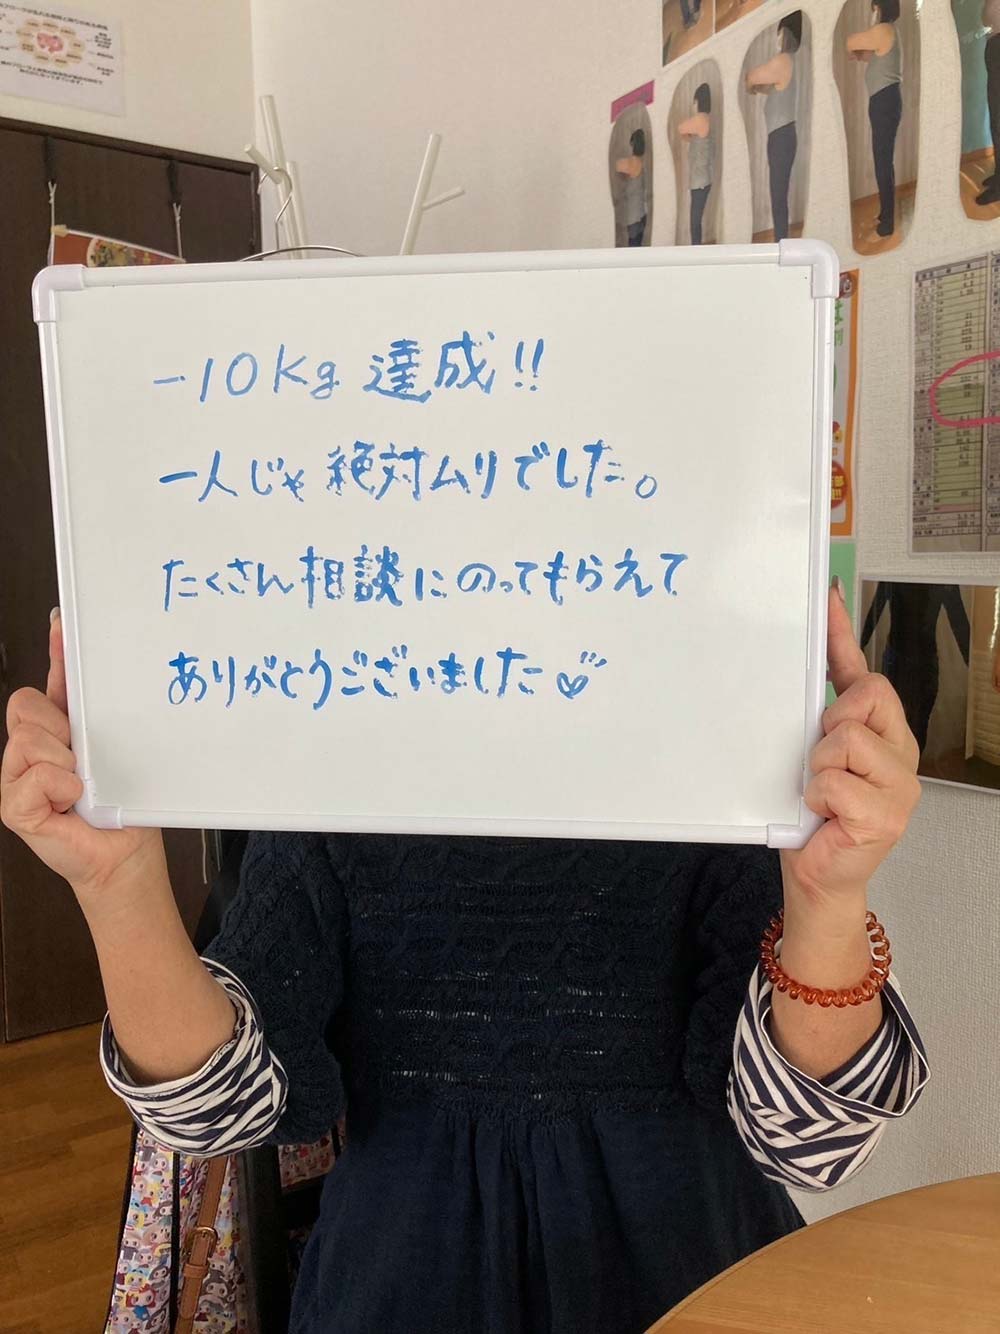 -10kg 達成!!
一人じゃ絶対ムリでした。
たくさん相談にのってもらえて
ありがとうございました♡